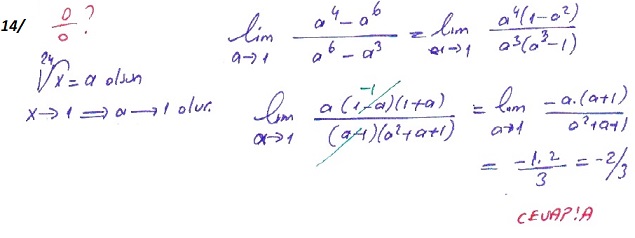 14/ 0/0 ?
²⁴√x = a olsun
x→1 ⟹ a→1 olur.
lim a→1 (a⁴ - a⁶)/(a⁶ - a³) = lim a→1 (a⁴(1-a²))/(a³(a³-1))
lim a→1 (a(1-a)(1+a))/((a-1)(a²+a+1)) -1 = lim a→1 (-a.(a+1))/(a²+a+1)
= (-1.2)/3 = -2/3
CEVAP:A